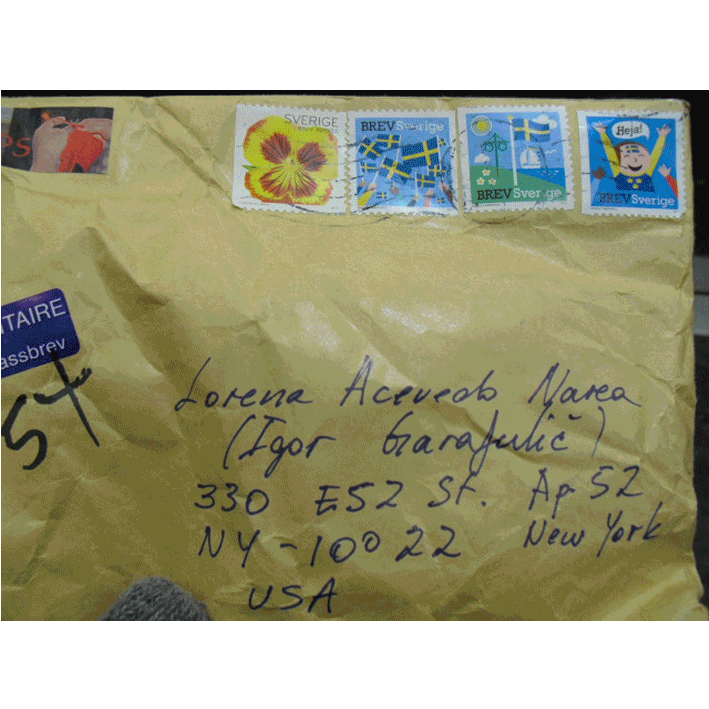 PS
SVERIGE
BREV Sverige
BREV Sverige
Heja!
BREV Sverige
ITAIRE
assbrev
Lorena Acevedo Narea
(Igor Garafulič)
330 E52 St. Ap 52
NY-10022 New York
USA